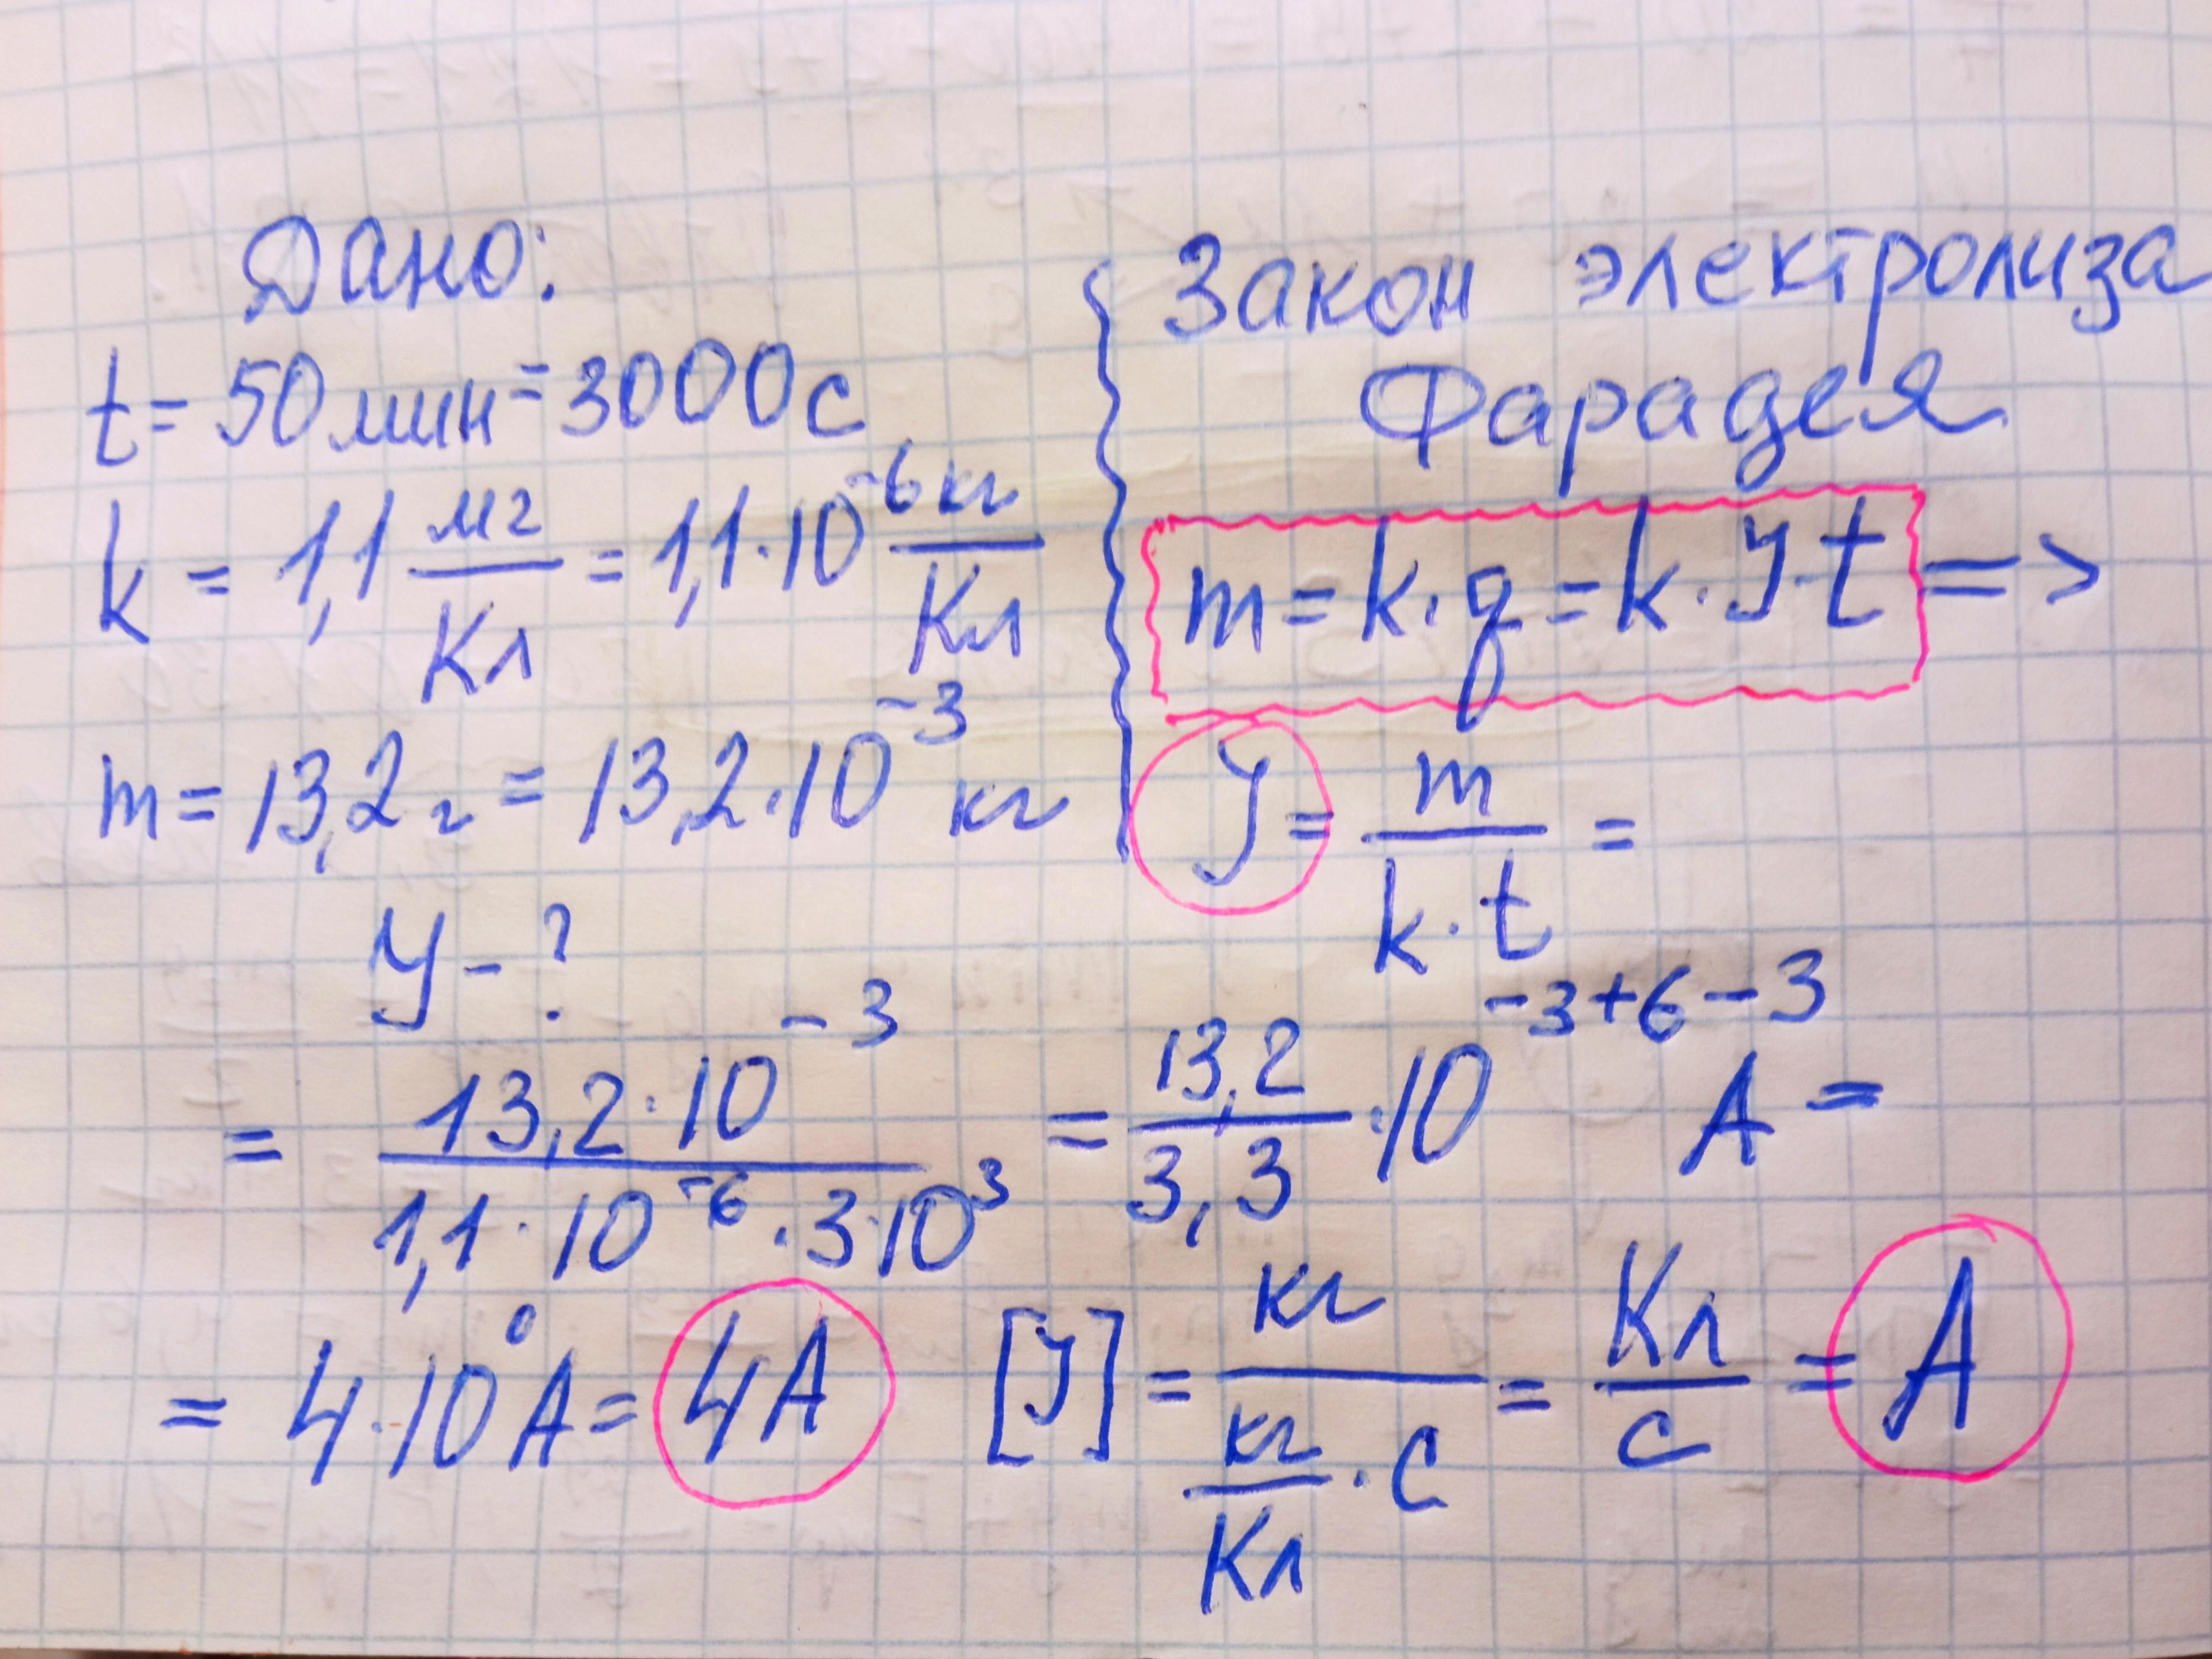 Дано:
t = 50 мин = 3000 с
k = 1,1 мг/Кл = 1,1·10⁻⁶ кг/Кл
m = 13,2 г = 13,2·10⁻³ кг
J - ?
Закон электролиза
Фарадея
m = k·q = k·J·t =>
J = m/(k·t) =
= (13,2·10⁻³)/(1,1·10⁻⁶·3·10³) = 13,2/3,3·10⁻³⁺⁶⁻³ A =
= 4·10⁰ A = 4A
[J] = кг/(кг/Кл·с) = Кл/с = A